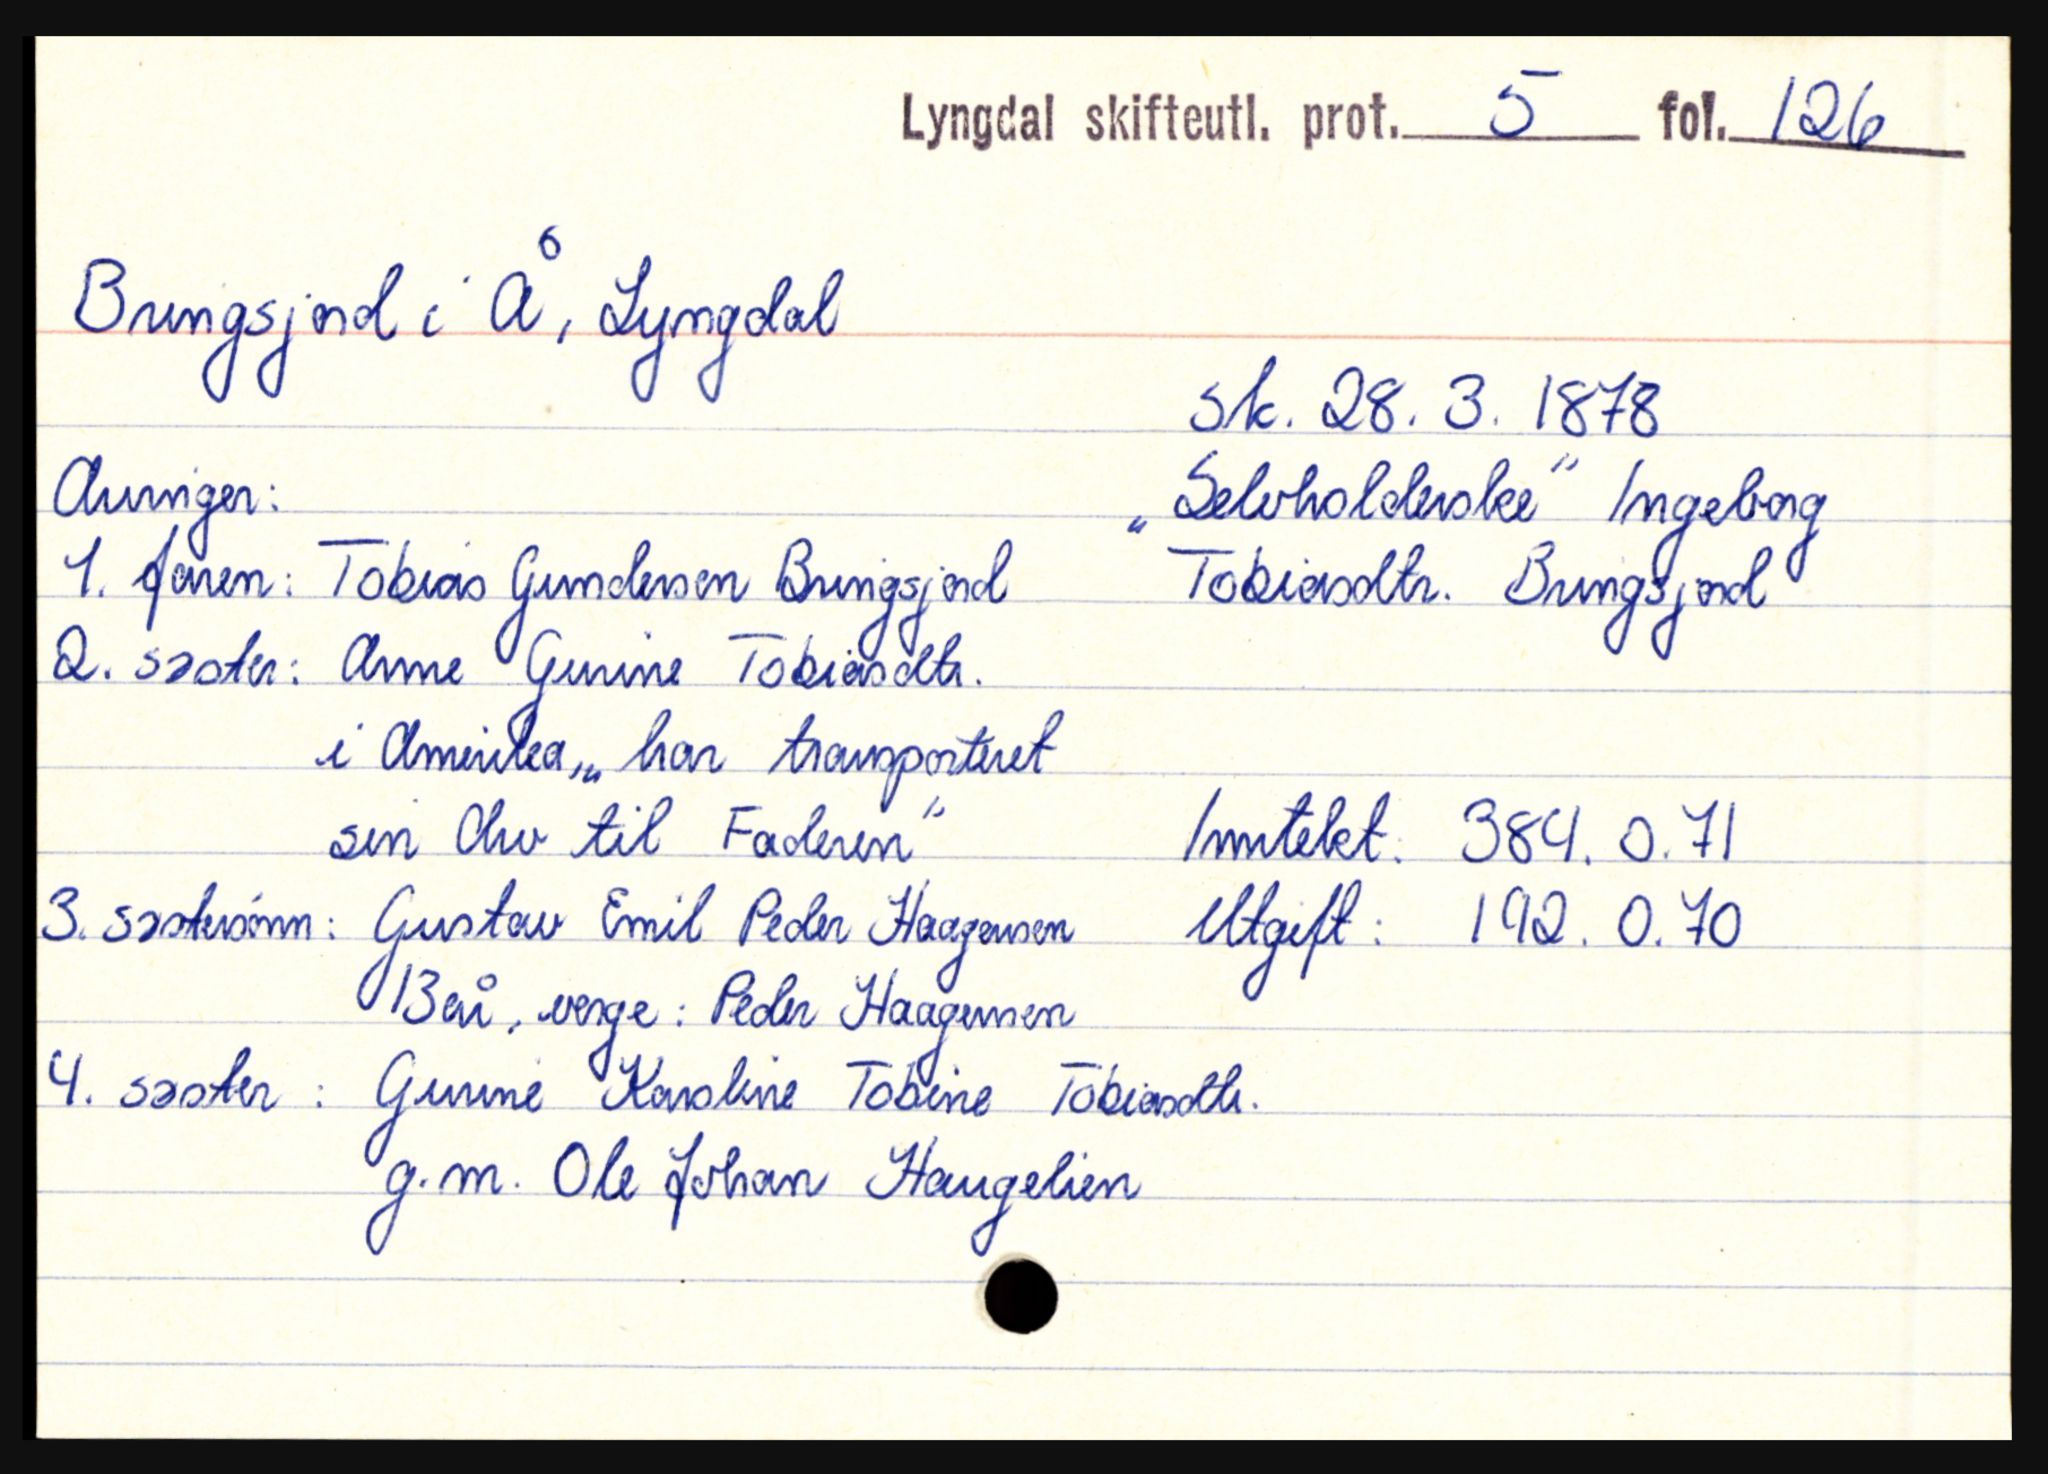 Lyngdal skifteutl. prot. 5 fol. 126
Bringsjord i Å, Lyngdal
sk. 28. 3. 1878
„Selvholderske" Ingeborg
Tobiasdtr. Bringsjord
Arvinger:
1. faren: Tobias Gundersen Bringsjord
2. søster: Anne Gurine Tobiasdtr.
i Amerika, „har transporteret
sin Arv til Faderen"
3. søstersønn: Gustav Emil Peder Haagensen
13 år, verge: Peder Haagensen
4. søster: Gunine Karoline Tobine Tobiasdtr.
g.m. Ole Johan Haugelien
Inntekt: 384. 0. 71
Utgift: 192. 0. 70